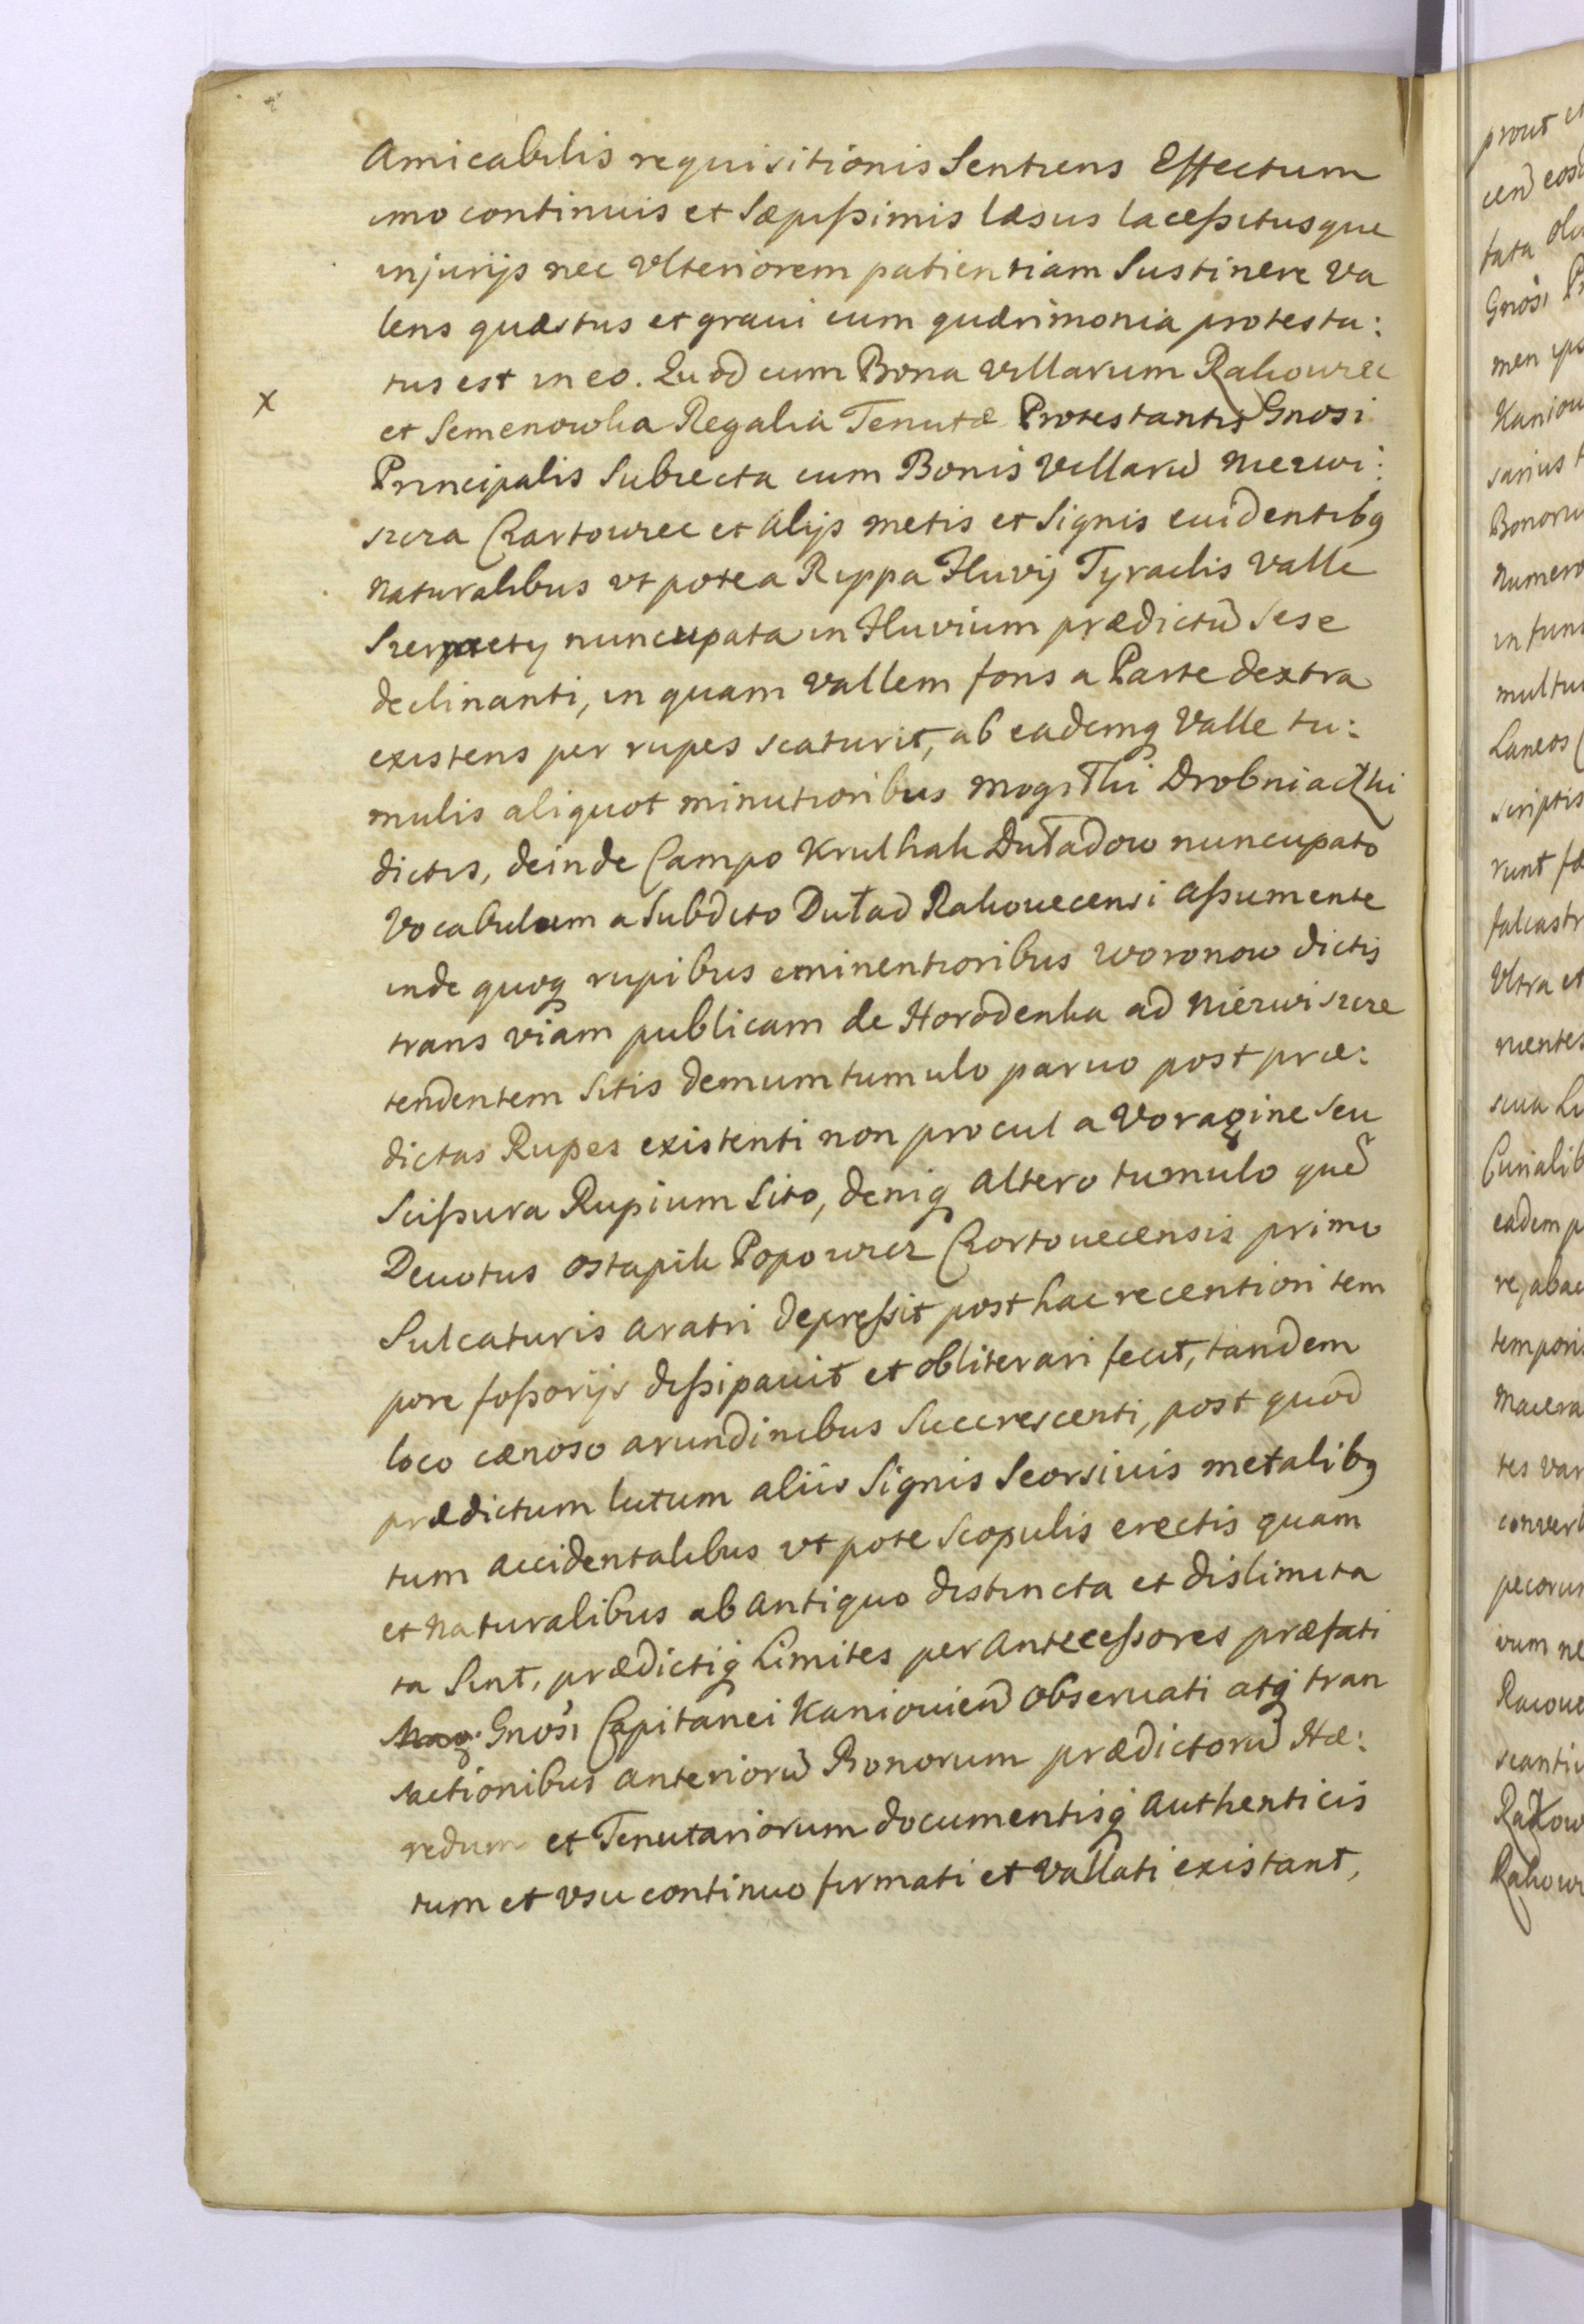 Amicabilis requisitionis Sentiens Effectum
imo continuis et Sæpissimis læsus lacessitusque
injurijs nec Ulteriorem patientiam Sustinere Va
lens quæstus et graui cum quærimonia protesta:
tus est in eo. Quod cum Bona Villarum Rakowiec
x
et Semenowka Regalia Tenutæ Protestantis Gnosi
Principalis Subiecta cum Bonis Villarũ Niezwi:
szcza Czartowiec et Alijs metis et Signis euidentibq
Naturalibus vt pote a Rippa Fluvij Tyraelis Valle
nuncupata in Fluvium prædictũ Sese
declinanti, in quam Vallem fons a Parte dextra
existens per rupes scaturit, ab eademq Valle tu:
mulis aliquot minutioribus Mogiłki Drobniaczki
dictis, deinde Campo Krulhak Dutadow nuncupato
Vocabulum a Subdito Dutad Rakouecensi Assumente
inde quoq rupibus eminentioribus Woronow dictis
trans viam publicam de Horodenka ad Niezwiszcze
tendentem Sitis demum tumulo paruo post præ:
dictas Rupes existenti non procul a Voragine Seu
Scissura Rupium Sito, deniq Altero tumulo quẽ
Deuotus Ostapik Popowicz Czortouecensis primo
Sulcaturis Aratri depressit post hac recentiori tem
pore fossorijs dissipauit et obliterari fecit, tandem
loco cænoso arundinibus Succrescenti, post quod
prædictum lutum aliis Signis Seorsivis metalibq
tum Accidentalibus vt pote Scopulis erectis quam
et Naturalibus ab Antiquo distincta et dislimita
ta Sint, prædictiq Limites per Antecessores præfati
Gnosi Capitanei Kaniouieñ Obseruati atq tran
sactionibus Anteriorũ Bonorum prædictorũ Hæ:
redum et Tenutariorum documentisq Authenticis
tum et Vsu continuo firmati et Vallati existant,
prout
tata
Gnosi
men
Kaniow
sarius
Bonoru
Numero
in fun
multu
Laneos
scriptis
runt
falcastr
Vltra et
nentes
Curialib
eadem p
temporis
Macera
tes var
convert
pecorum
Racoue
Rakow
Rakow